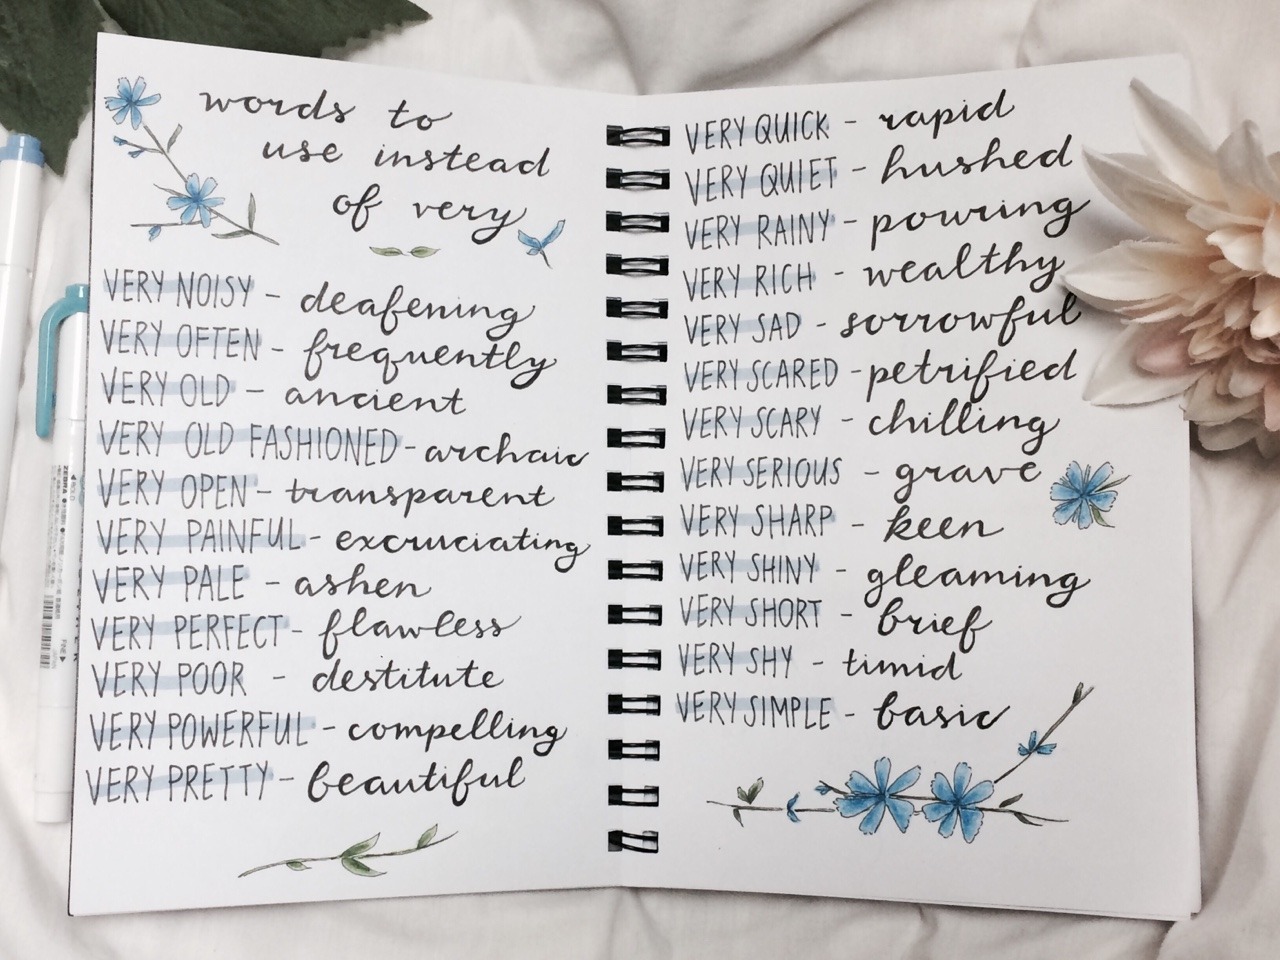 words to
use instead
of very
VERY NOISY - deafening
VERY OFTEN - frequently
VERY OLD - ancient
VERY OLD FASHIONED - archaic
VERY OPEN - transparent
VERY PAINFUL - excruciating
VERY PALE - ashen
VERY PERFECT - flawless
VERY POOR - destitute
VERY POWERFUL - compelling
VERY PRETTY - beautiful
VERY QUICK - rapid
VERY QUIET - hushed
VERY RAINY - pouring
VERY RICH - wealthy
VERY SAD - sorrowful
VERY SCARED - petrified
VERY SCARY - chilling
VERY SERIOUS - grave
VERY SHARP - keen
VERY SHINY - gleaming
VERY SHORT - brief
VERY SHY - timid
VERY SIMPLE - basic
ZEBRA
FINE